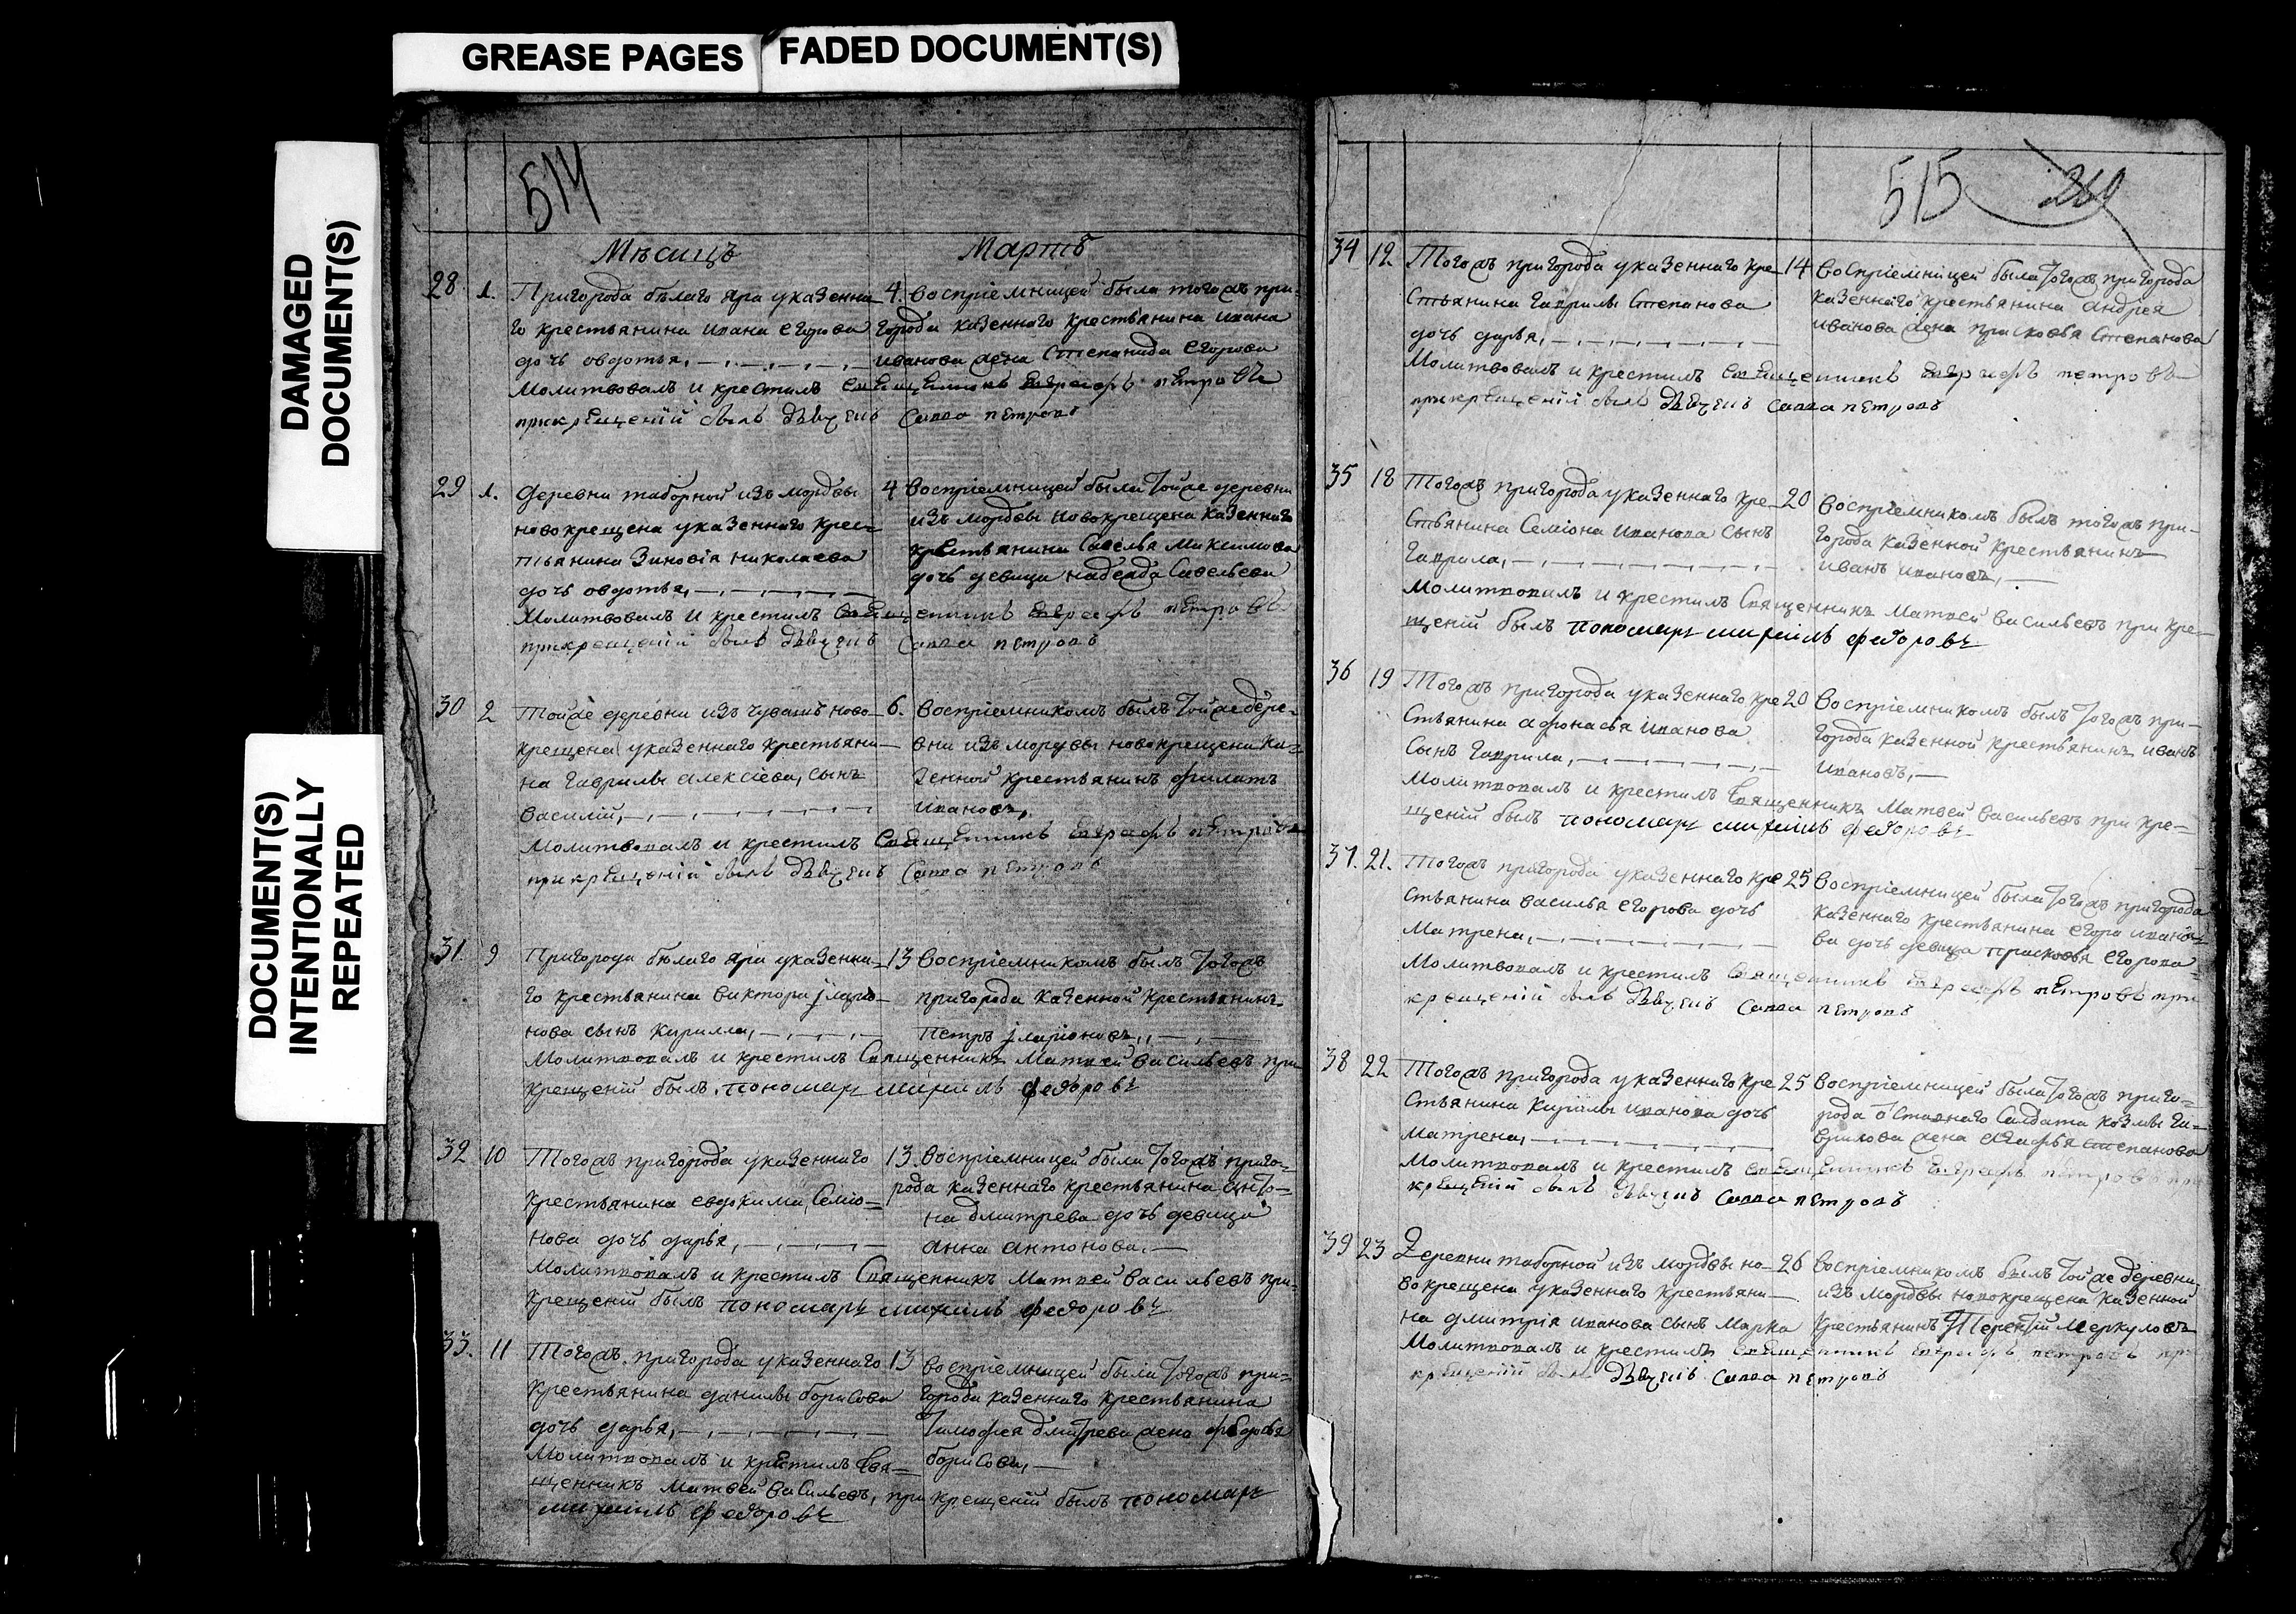 GREASE PAGES
FADED DOCUMENT(S)
DAMAGED
DOCUMENT(S)
DOCUMENT(S)
INTENTIONALLY
REPEATED
514
Мѣсяцъ Мартъ
28 1. Пригорода бѣлаго яра указанна-
го крестьянина ивана егорова
дочь овдотья,
4. Воспріемницей была тогожъ при-
города казеннаго крестьянина ивана
иванова жена Степанида егорова
Молитвовалъ и крестилъ священникъ евграфъ петровъ
при крещеніи былъ дьячекъ Савва петровъ
29 1. Деревни таборной изъ мордвы
новокрещена указеннаго крес-
тьянина Зиновія николаева
дочь овдотья,
4 Воспріемницей была тойже деревни
изъ мордвы новокрещена казеннаго
крестьянина Савелья Максимова
дочь девица надежда Савельева
Молитвовалъ и крестилъ священникъ евграфъ петровъ
при крещеніи былъ дьячекъ Савва петровъ
30 2 Тойже деревни изъ чувашъ ново-
крещена указеннаго крестьяни-
на Гаврилы алексіева, сынъ
василій,
6. Воспріемникомъ былъ тойже дере-
вни изъ мордвы новокрещена ка-
зенной крестьянинъ филатъ
ивановъ,
Молитвовалъ и крестилъ Священникъ евграфъ петровъ
при крещеніи былъ дьячекъ Савва петровъ
31. 9 Пригорода бѣлаго яра указенна-
го крестьянина виктора іларіо-
нова сынъ Кирилла,
13 Воспріемникомъ былъ тогожъ
пригорода казенной крестьянинъ
петръ іларіоновъ,
Молитвовалъ и крестилъ Священникъ Матвей васильевъ при
крещеніи былъ пономарь михаилъ федоровъ
32 10 Тогожъ пригорода указеннаго
крестьянина евдокима Семіо-
нова дочь дарья,
13. Воспріемницей была тогожъ приго-
рода казеннаго крестьянина анто-
на дмитрева дочь девица
анна антонова.
Молитвовалъ и крестилъ Священникъ Матвей васильевъ при
крещеніи былъ пономарь михаилъ федоровъ
33. 11 Тогожъ пригорода указеннаго
крестьянина данилы борисова
дочь дарья,
13 Воспріемницей была тогожъ при-
города казеннаго крестьянина
тимофея дмитрева жена федосья
борисова,
Молитвовалъ и крестилъ Свя-
щенникъ Матвей васильевъ, при крещеніи былъ пономарь
михаилъ федоровъ
515
34 12 Тогожъ пригорода указеннаго кре-
стьянина Гаврилы Степанова
дочь дарья,
14 Воспріемницей была тогожъ пригорода
казеннаго крестьянина андрея
иванова жена прасковья Степанова
Молитвовалъ и крестилъ священникъ евграфъ петровъ
при крещеніи былъ дьячекъ Савва петровъ
35 18 Тогожъ пригорода указеннаго кре-
стьянина Семіона иванова сынъ
Гаврила,
20 Воспріемникомъ былъ тогожъ при-
города казенной крестьянинъ
иванъ ивановъ,
Молитвовалъ и крестилъ Священникъ Матвей васильевъ при кре-
щеніи былъ пономарь михаилъ федоровъ
36 19 Тогожъ пригорода указеннаго кре
стьянина афонасья иванова
сынъ Гаврила,
20 Воспріемникомъ былъ тогожъ при-
города казенной крестьянинъ иванъ
ивановъ,
Молитвовалъ и крестилъ Священникъ Матвей васильевъ при кре-
щеніи былъ пономарь михаилъ федоровъ
37. 21. Тогожъ пригорода указеннаго кре
стьянина василья егорова дочь
Матрена,
25 Воспріемницей была тогожъ пригорода
казеннаго крестьянина егора ивано-
ва дочь девица прасковья егорова
Молитвовалъ и крестилъ Священникъ евграфъ петровъ при
крещеніи былъ дьячекъ Савва петровъ
38 22 Тогожъ пригорода указеннаго кре
стьянина Кирилы иванова дочь
матрена,
25 Воспріемницей была тогожъ приго-
рода отставнаго Салдата козмы га-
врилова жена агафья степанова
Молитвовалъ и крестилъ священникъ евграфъ петровъ при
крещеніи былъ дьячекъ Савва петровъ
39 23 Деревни таборной изъ мордвы но-
вокрещена указеннаго крестьяни-
на дмитрія иванова сынъ Марка
26 Воспріемникомъ былъ тойже деревни
изъ мордвы новокрещена казенной
крестьянинъ Терентій Меркуловъ
Молитвовалъ и крестилъ священникъ евграфъ петровъ при
крещеніи былъ дьячекъ Савва петровъ